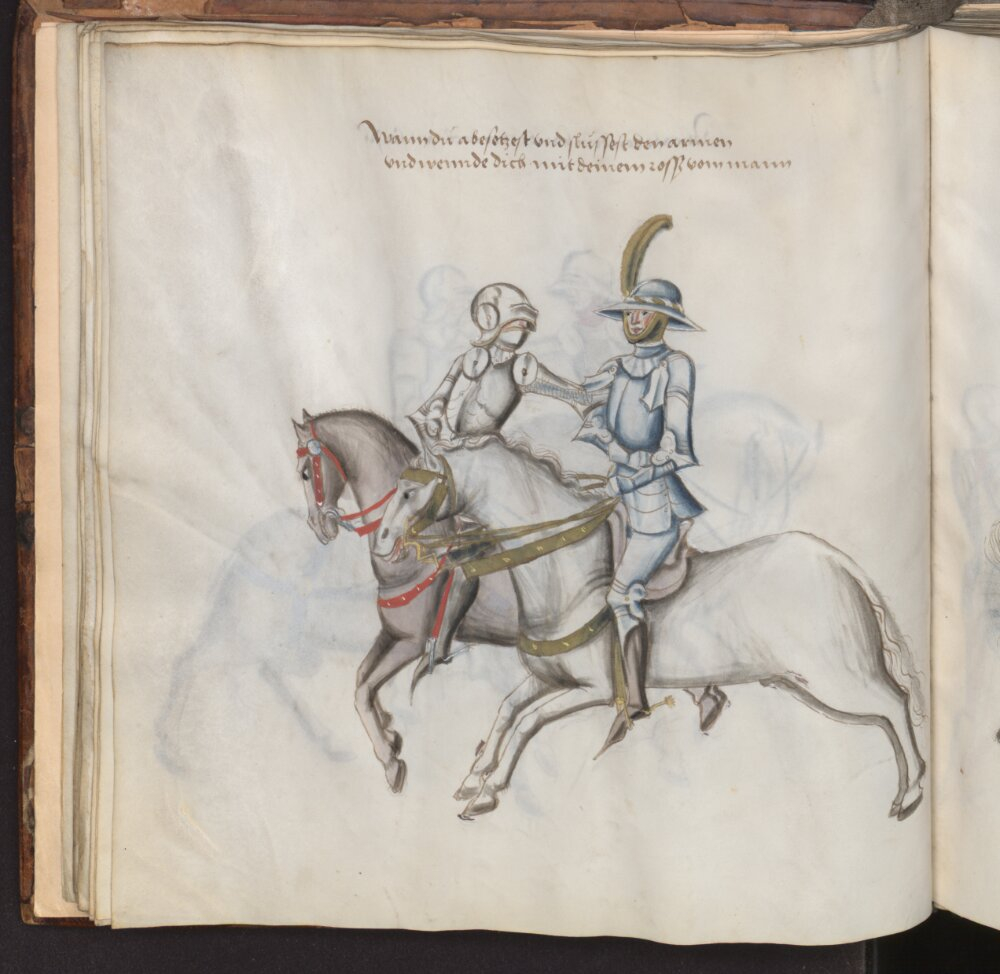 Wann du abesetzest vnd slüssest den armen
vnd wennde dich mit deinem ross vom mann